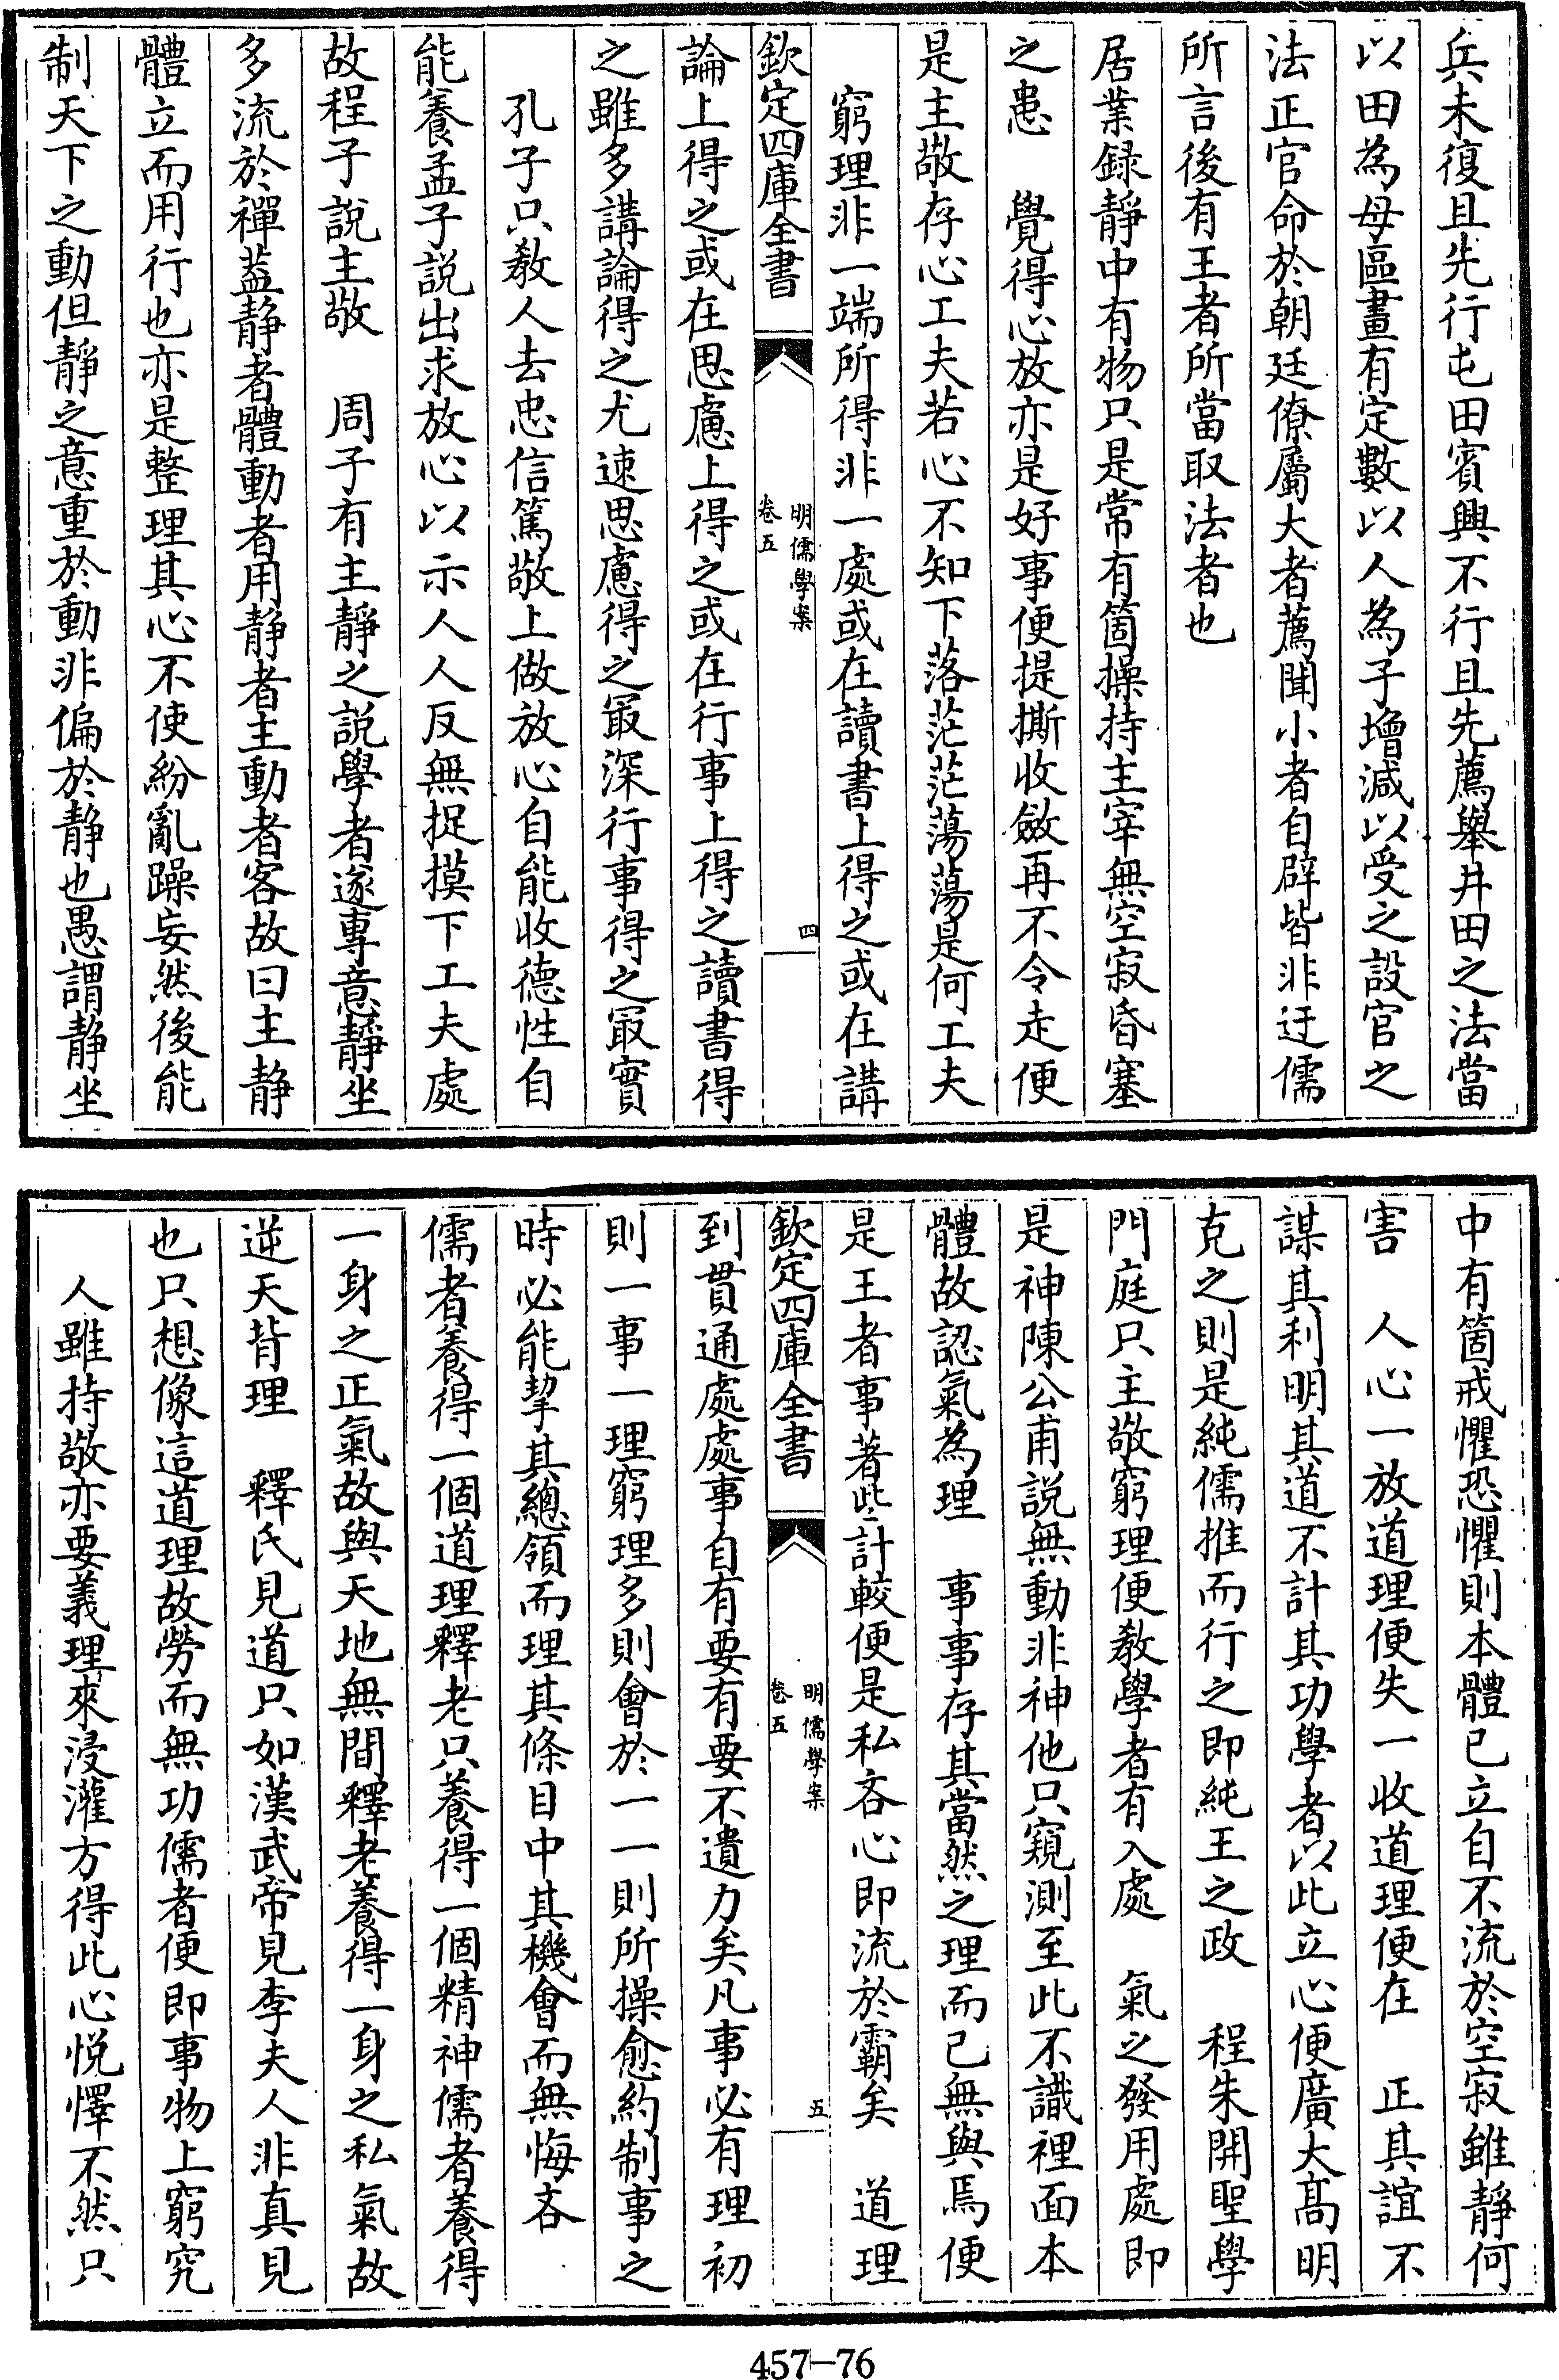 兵未復且先行屯田賓興不行且先薦舉井田之法當
以田為母區畫有定數以人為子增減以受之設官之
法正官命於朝廷僚屬大者薦聞小者自辟皆非迂儒
所言後有王者所當取法者也
居業録靜中有物只是常有箇操持主宰無空寂昏塞
之患　覺得心放亦是好事便提撕收斂再不令走便
是主敬存心工夫若心不知下落茫茫蕩蕩是何工夫
窮理非一端所得非一處或在讀書上得之或在講
欽定四庫全書
明儒學案
卷五
四
論上得之或在思慮上得之或在行事上得之讀書得
之雖多講論得之尤速思慮得之冣深行事得之冣實
孔子只教人去忠信篤敬上做放心自能收德性自
能養孟子説出求放心以示人人反無捉摸下工夫處
故程子說主敬　周子有主靜之説學者遂專意靜坐
多流於禪葢静者體動者用静者主動者客故曰主静
體立而用行也亦是整理其心不使紛亂躁妄然後能
制天下之動但靜之意重於動非偏於静也愚謂静坐
中有箇戒懼恐懼則本體已立自不流於空寂雖靜何
害　人心一放道理便失一收道理便在　正其誼不
謀其利明其道不計其功學者以此立心便廣大髙明
克之則是純儒推而行之即純王之政　程朱開聖學
門庭只主敬窮理便教學者有入處　氣之發用處即
是神陳公甫説無動非神他只窺測至此不識裡面本
體故認氣為理　事事存其當然之理而已無與焉便
是王者事著些計較便是私吝心即流於霸矣　道理
欽定四庫全書
明儒學案
卷五
五
到貫通處處事自有要有要不遺力矣凡事必有理初
則一事一理窮理多則會於一一則所操愈約制事之
時必能挈其總領而理其條目中其機會而無悔吝
儒者養得一個道理釋老只養得一個精神儒者養得
一身之正氣故與天地無間釋老養得一身之私氣故
逆天背理　釋氏見道只如漢武帝見李夫人非真見
也只想像這道理故勞而無功儒者便即事物上窮究
人雖持敬亦要義理來浸灌方得此心悦懌不然只
457-76